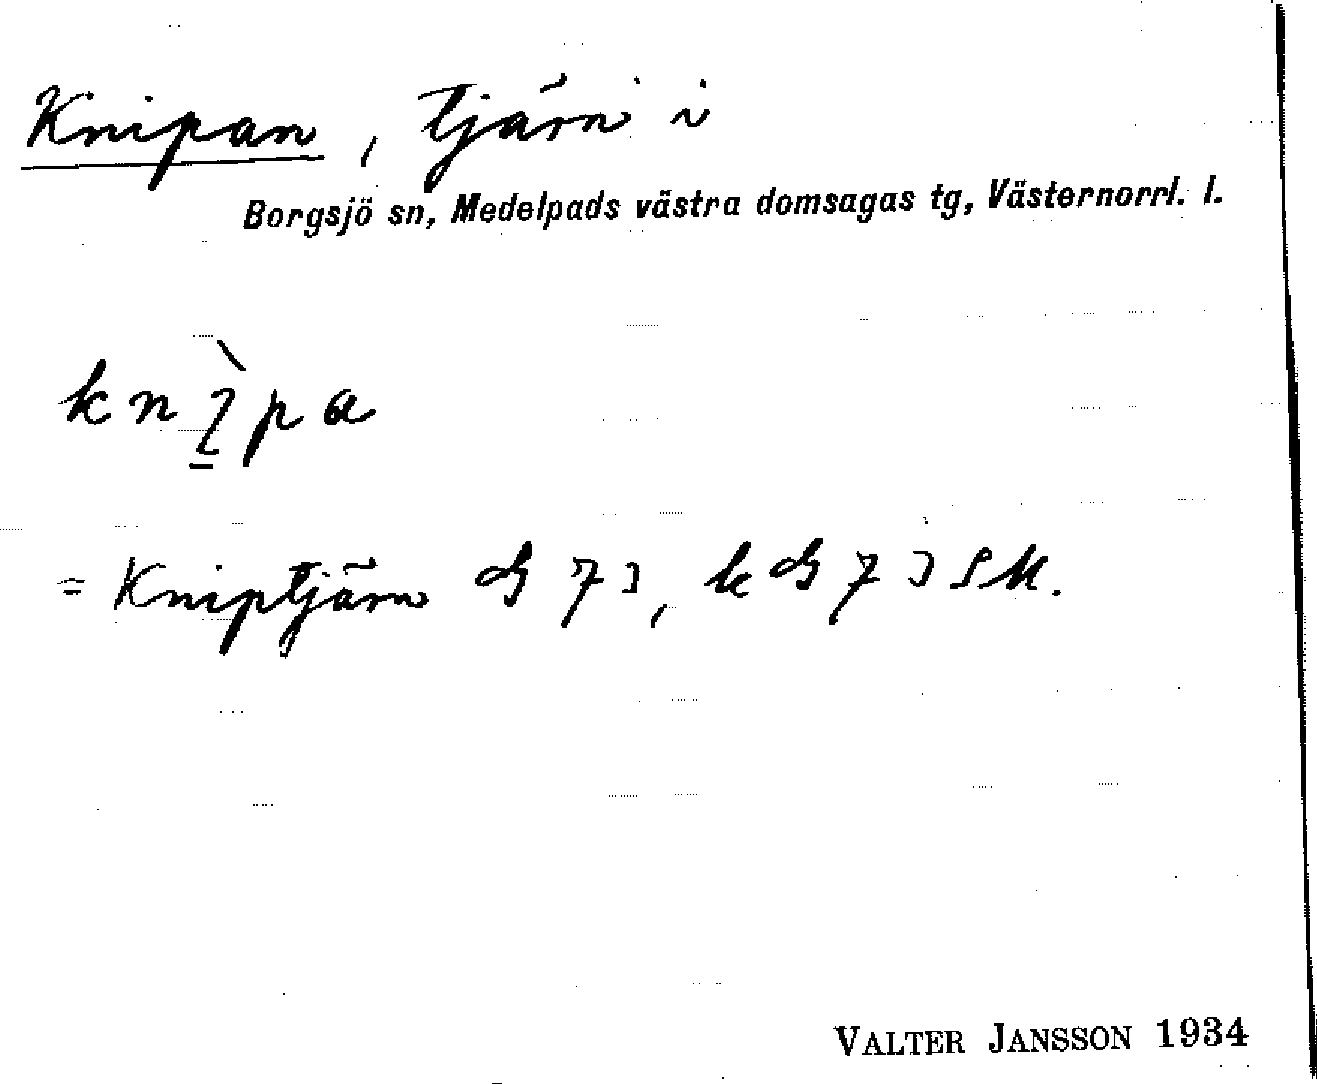 Knipan, tjärn i
Borgsjö sn, Medelpads västra domsagas tg, Västernorrl. l.
= Kniptjärn
VALTER JANSSON 1934